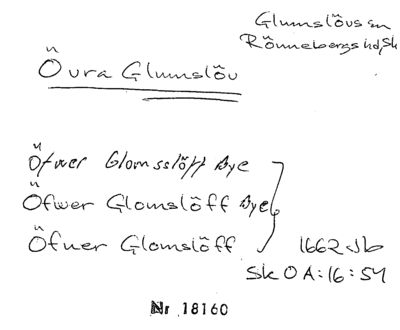 Glumslövs sn
Rönnebergs hd, Sk
Övra Glumslöv
Öfwer Glomsslöff Bye
Öfwer Glomslöff Bye
Öfuer Glomslöff
1662 Jb
Sk O A:16:54
Nr 18160